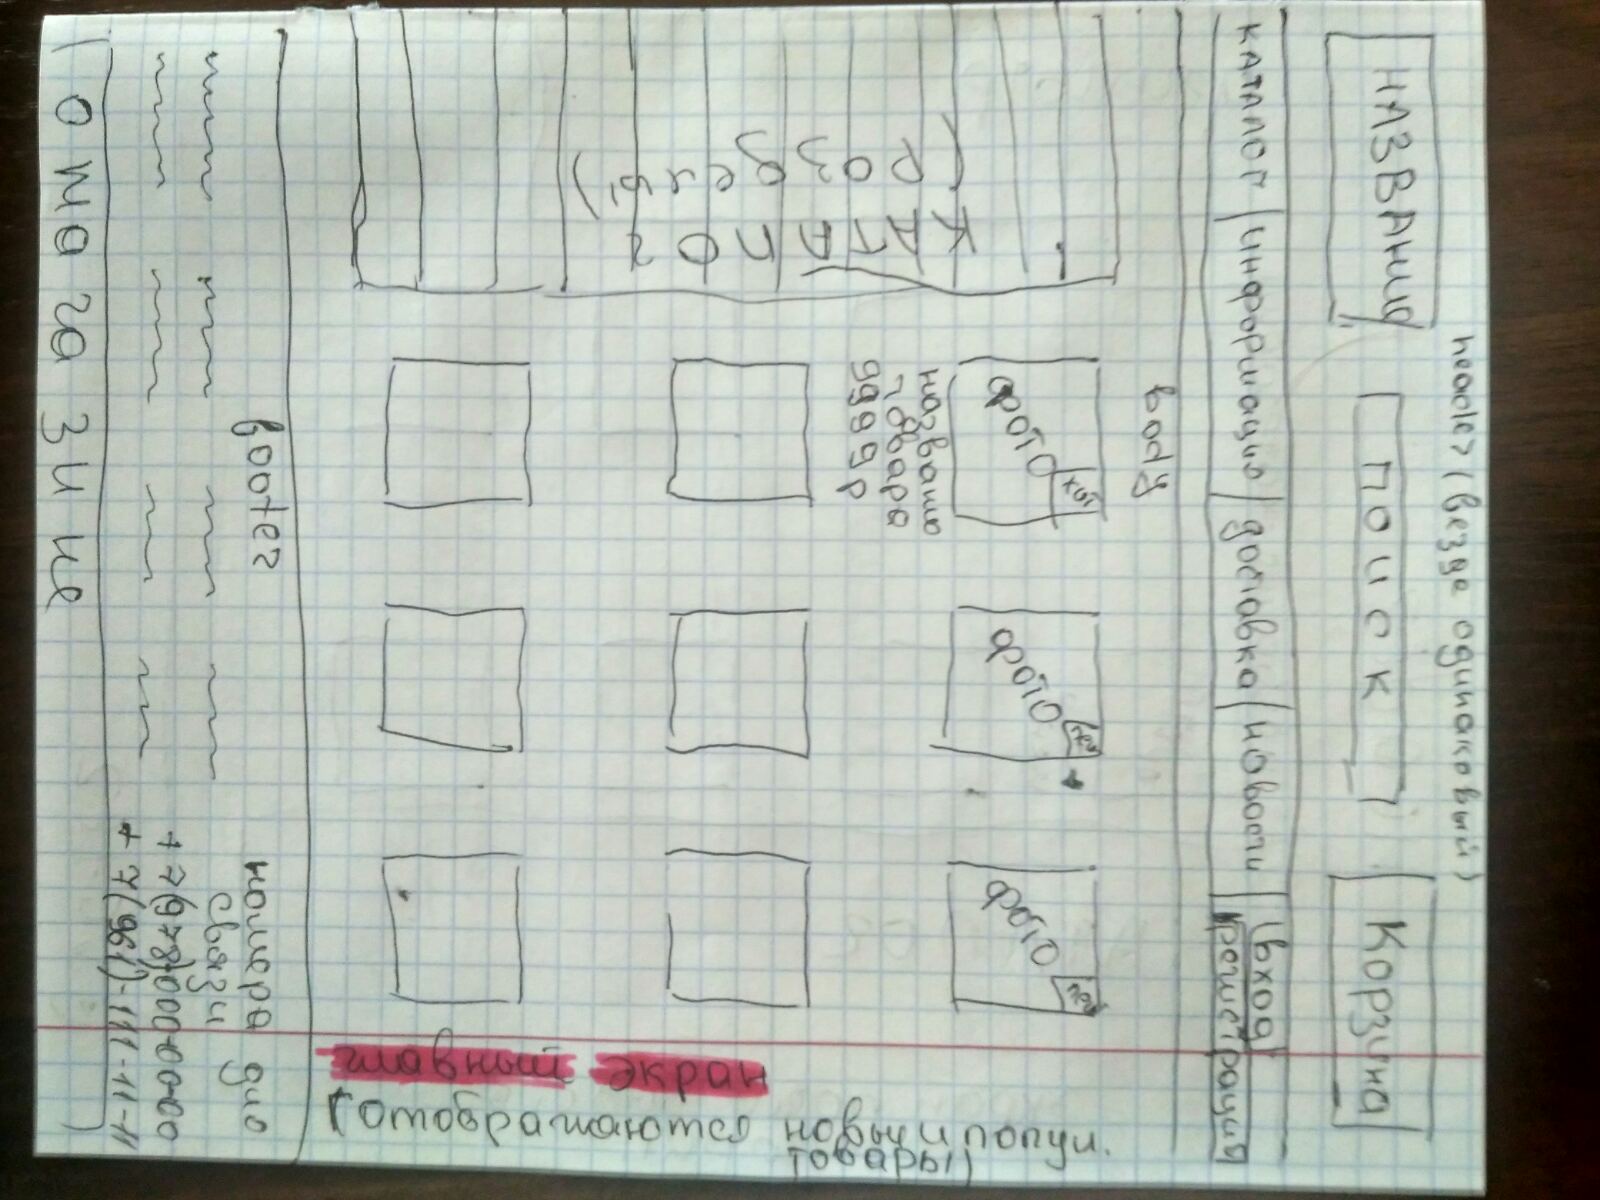 header (везде одинаковый)
НАЗВАНИЯ
ПОИСК
Корзина
КАТАЛОГ
информация
доставка
новости
вход
регистрация
body
ФОТО
хит
ФОТО
ФОТО
название
товара
9999р
КАТАЛОГ
(разделы)
главный экран
(отображаются новый и популя.
товары)
footer
номера для
связи
+7(978)000-00-00
+7(961)-111-11-11
о магазине